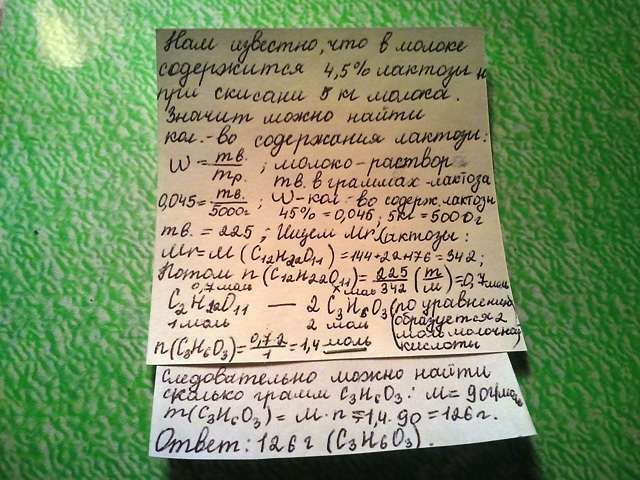 Нам известно, что в молоке
содержится 4,5% лактозы и
при скисани 5 кг молока.
Значит можно найти
кол.-во содержания лактозы:
W = mв. / mр. ; молоко-раствор
mв. в граммах-лактоза
0,045 = mв. / 5000г ; W-кол-во содерж. лактозы
45% = 0,045; 5кг = 5000г
mв. = 225; Ищем Mr лактозы:
Mr = M (C12H22O11) = 144+22+176 = 342;
Потом n (C12H22O11) = 225/342 (m/M) = 0,7 моль
0,7 моль x моль
C2H22O11 — 2 C3H6O3 (по уравнению
1 моль 2 моль образуется 2
моля молочной
n(C3H6O3) = 0,7·2/1 = 1,4 моль кислоты)
Следовательно можно найти
сколько грамм C3H6O3: M = 90г/моль
m(C3H6O3) = M·n = 1,4·90 = 126г.
Ответ: 126г (C3H6O3).